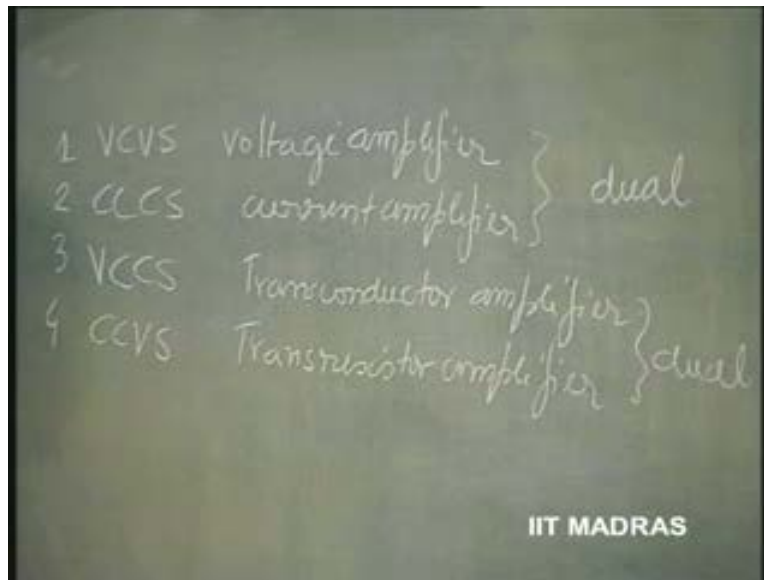 1 VCVS voltage amplifier } dual
2 CCCS current amplifier
3 VCCS Transconductor amplifier } dual
4 CCVS Transresistor amplifier
IIT MADRAS